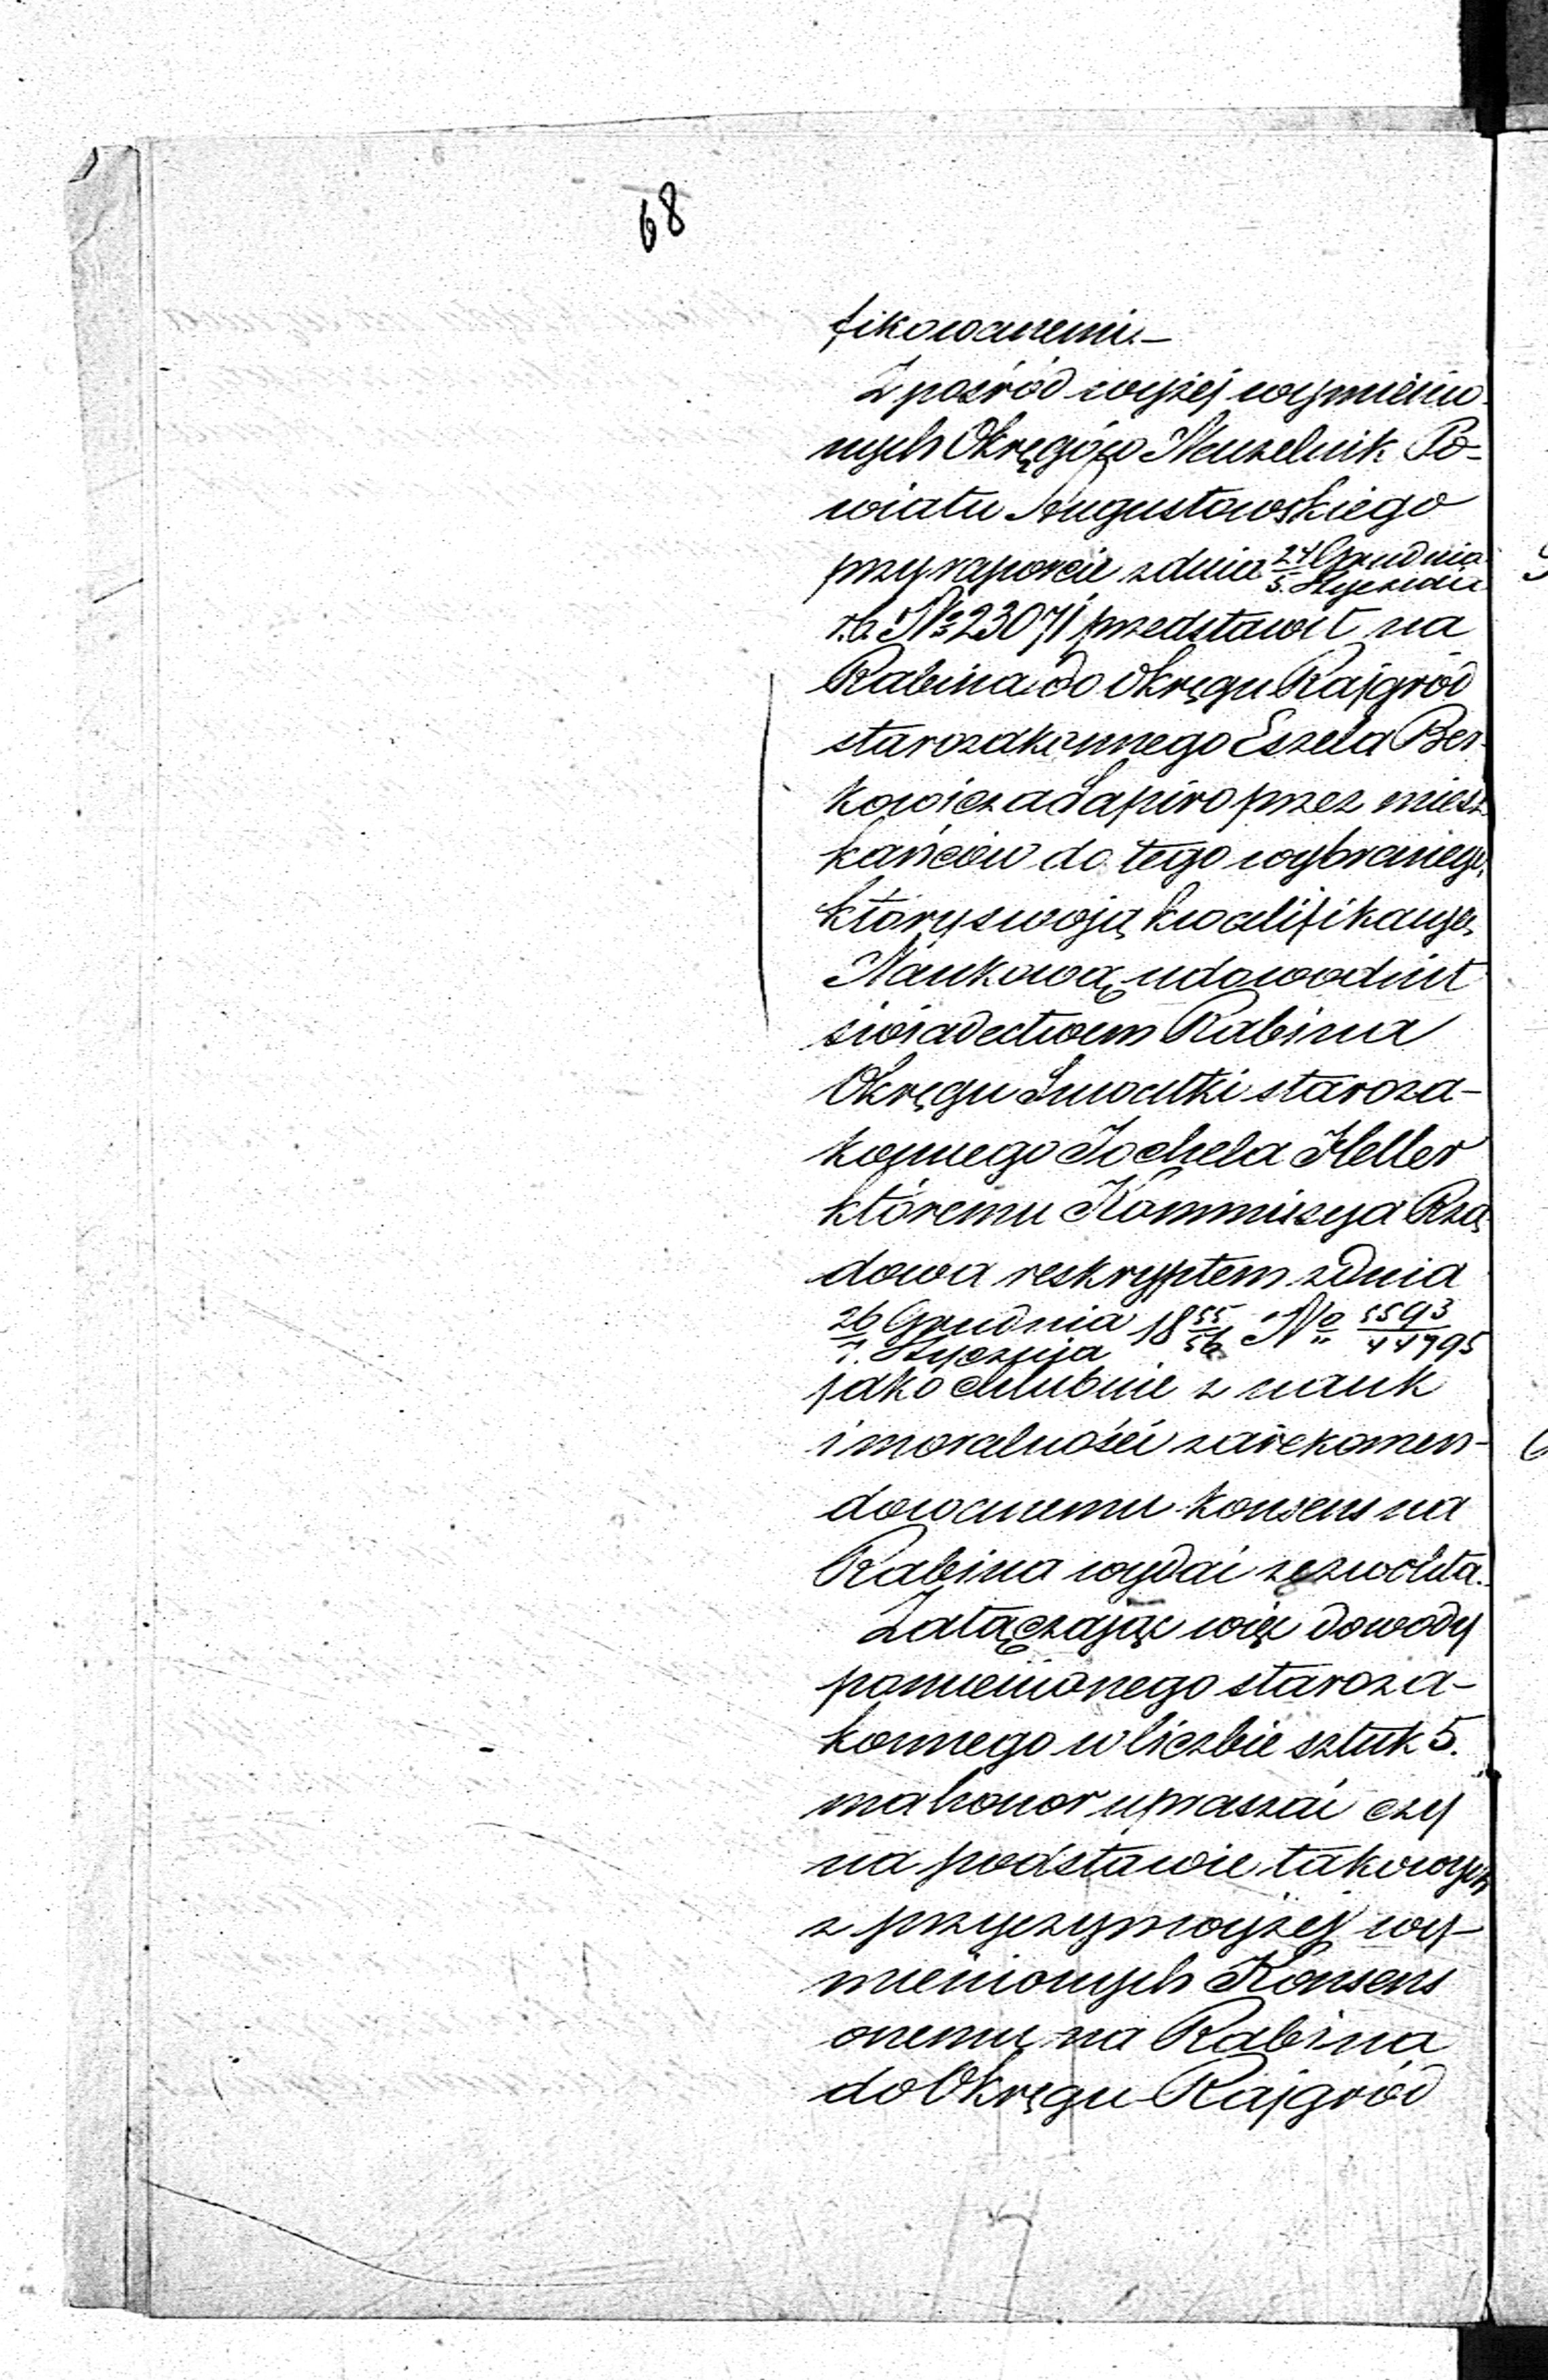 68
fikowanemi.—
Z pośród wyżej wymienio-
nych Okręgów Naczelnik Po-
wiatu Augustowskiego
przy raporcie z dnia 24 Grudnia / 5. Stycznia
r.b. № 23071 przedstawił na
Rabina do Okręgu Rajgród
starozakonnego Eszela Ber-
kowicza Sapiro przez miesz
kańców do tego wybranego,
który swoją kwalifikacyę
Naukową udowodnił
świadectwem Rabina
Okręgu Suwałki staroza-
konnego Jochela Heller
któremu Kommissya Rzą
dowa reskryptem z dnia
26 Grudnia / 7. Stycznia 18 55/56 № 5593/44795
jako chlubnie z nauk
i moralności zarekomen-
dowanemu konsens na
Rabina wydać zezwoliła.
Załączając więc dowody
pomienionego staroza-
konnego w liczbie sztuk 5.
ma honor upraszać czy
na podstawie takowych
z przyczyn wyżej wy-
mienionych Konsens
onemu na Rabina
do Okręgu Rajgród